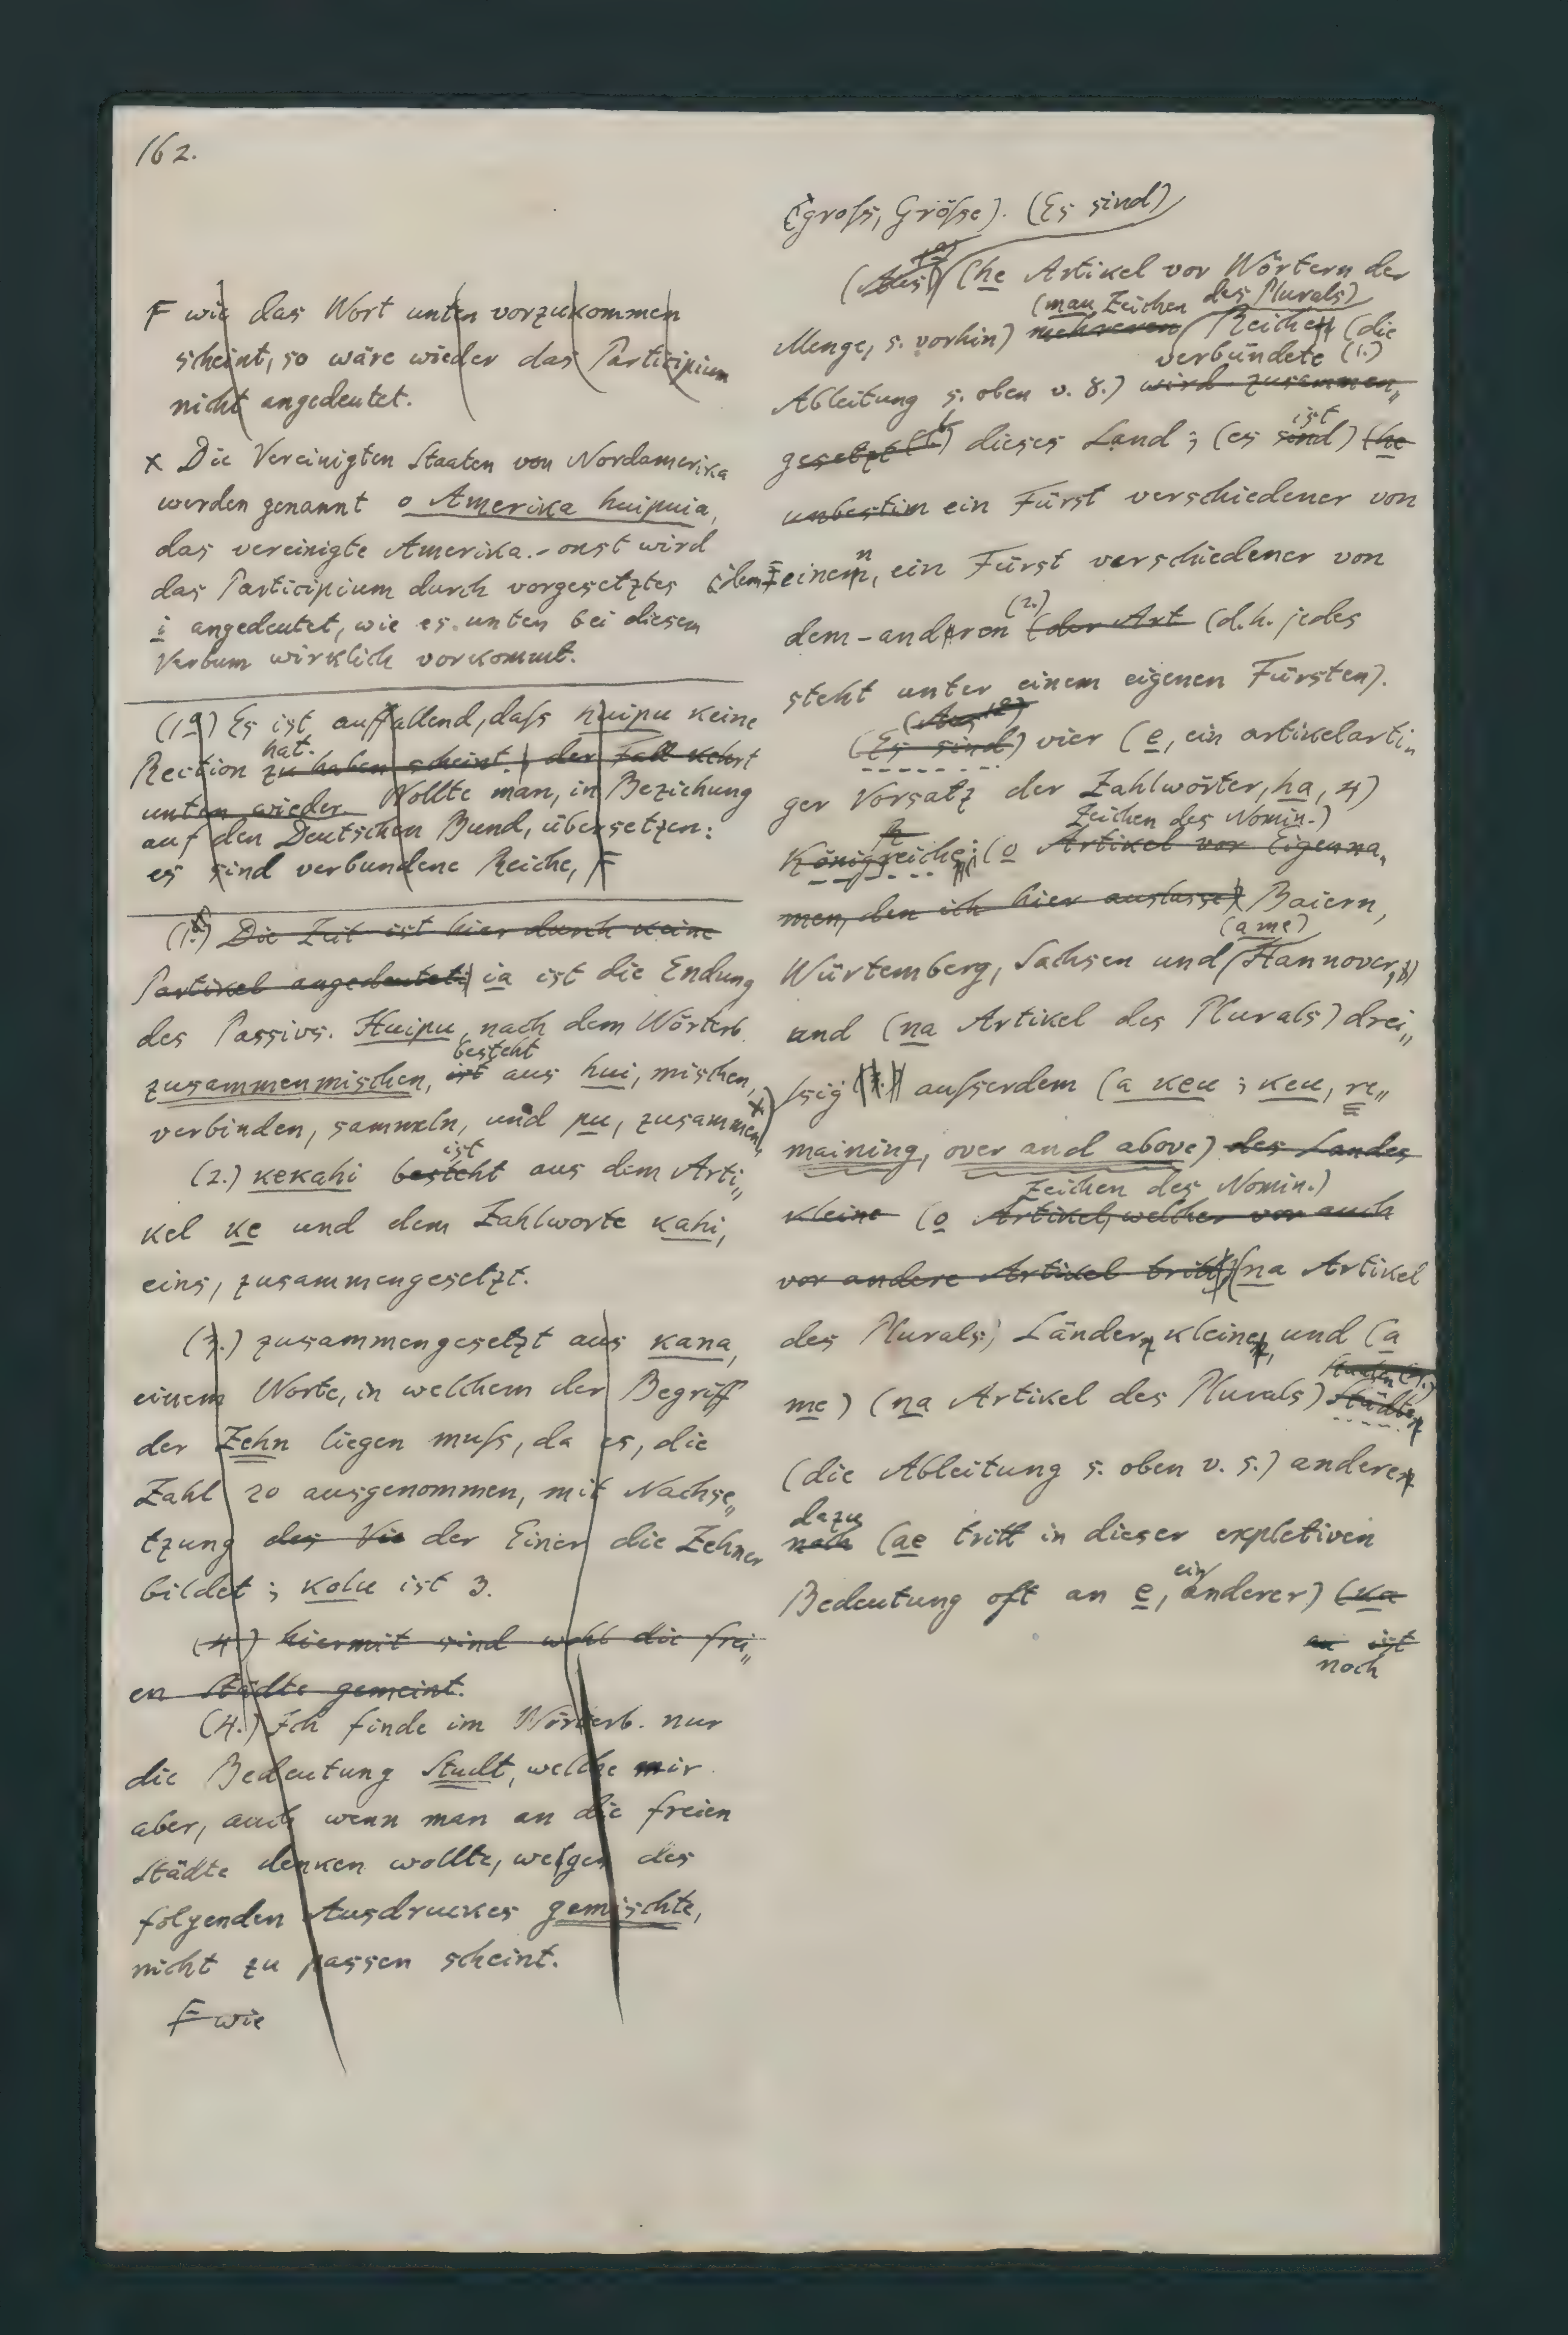 162.
F wie das Wort unten vorzukommen
scheint, so wäre wieder das Participium
nicht angedeutet.
x Die Vereinigten Staaten von Nordamerika
werden genannt o Amerika huipuia,
das vereinigte Amerika. - onst wird
das Participium durch vorgesetztes
i angedeutet, wie es unten bei diesem
Verbum wirklich vorkommt.
(1a) Es ist auffallend, daſs huipu keine
hat.
Rection zu haben scheint. der Fall kehrt
unten wieder. Wollte man, in Beziehung
auf den Deutschen Bund, übersetzen:
es sind verbundene Reiche, F
(1.) Die Zeit ist hier durch keine
Partikel angedeutet; ia ist die Endung
des Passivs. Huipu, nach dem Wörterb.
besteht
zusammenmischen, ist aus hui, mischen,
verbinden, sammeln, und pu, zusammen x)
ist
(2.) kekahi besteht aus dem Arti„
kel ke und dem Zahlworte kahi,
eins, zusammengesetzt.
(3.) zusammengesetzt aus kana,
einem Worte, in welchem der Begriff
der Zehn liegen muſs, da es, die
Zahl 20 ausgenommen, mit Nachse„
tzung des Vie der Einer die Zehner
bildet; kolu ist 3.
(4.) hiermit sind wohl die frei„
en Städte gemeint.
(4.) Ich finde im Wörterb. nur
die Bedeutung Stadt, welche mir
aber, auch wenn man an die freien
Städte denken wollte, wegen des
folgenden Ausdruckes gemischte,
nicht zu passen scheint.
F wie
(groſs, Gröſse). (Es sind)
(he Artikel vor Wörtern der
(mau Zeichen des Plurals)
Menge, s. vorhin) mehreren Reiche (die
verbündete (1.)
Ableitung s. oben v. 8.) wird zusammen„
ist
gesetzt dieses Land; (es sind) (he
unbestim ein Fürst verschiedener von
n
dem einem, ein Fürst verschiedener von
(2.)
dem-anderen (der Art (d.h. jedes
steht unter einem eigenen Fürsten).
(Es sind) vier (e, ein artikelarti„
ger Vorsatz der Zahlwörter, ha, 4)
Zeichen des Nomin.)
Königreiche: (o Artikel vor Eigenna„
men, den ich hier auslasse) Baiern,
(a me)
Würtemberg, Sachsen und Hannover,
und (na Artikel des Plurals) drei„
ſsig auſserdem (a keu; keu, re„
maining, over and above) des Landes
Zeichen des Nomin.)
kleine (o Artikel, welcher vor auch
vor andere Artikel tritt) (na Artikel
des Plurals) Länder, kleine, und (a
me) (na Artikel des Plurals) Städte
(die Ableitung s. oben v. 5.) andere
dazu
noch (ae tritt in dieser expletiven
ein
Bedeutung oft an e, anderer) (ka
ist
noch